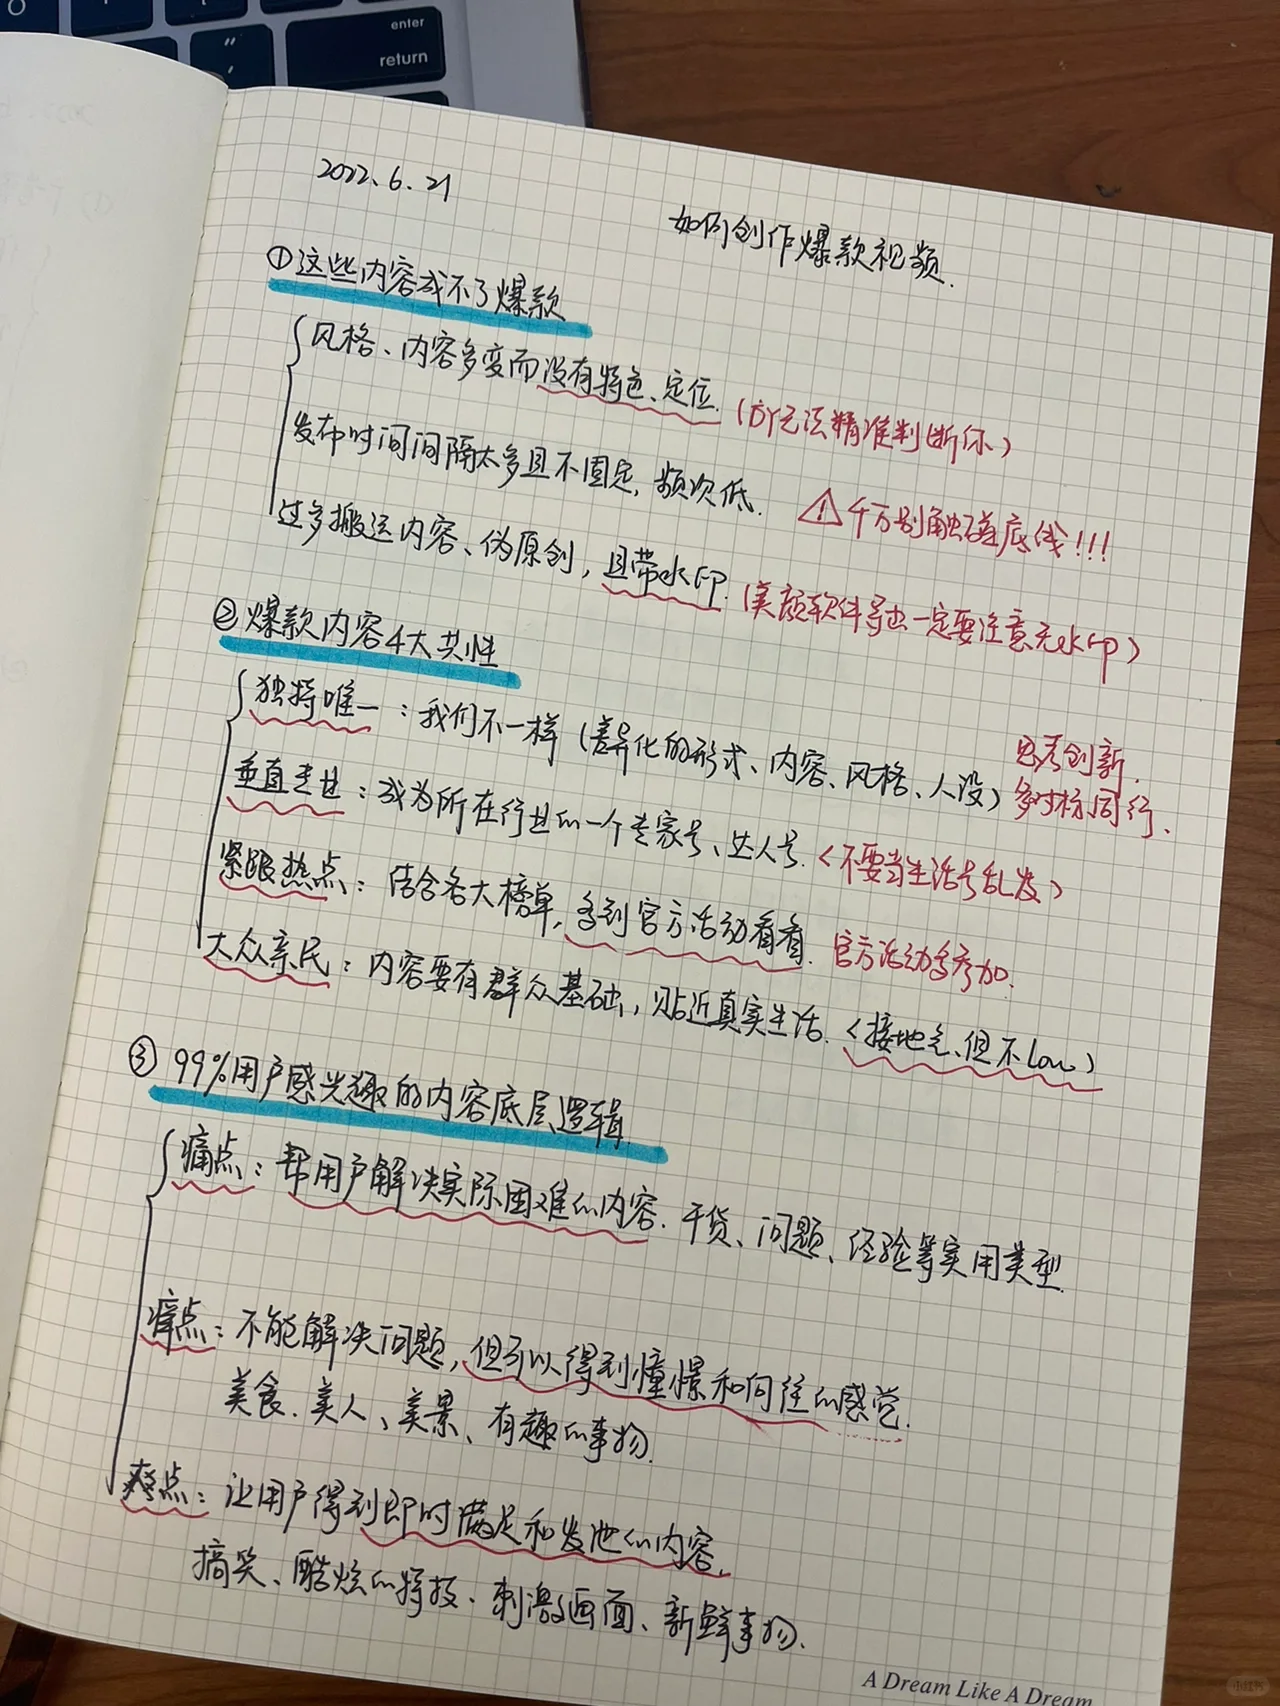 enter
return
2022.6.21
如何创作爆款视频.
①这些内容成不了爆款
风格、内容多变而没有特色、定位.(方无法精准判断你)
发布时间间隔太多且不固定,频次低. ⚠千万别触碰底线!!!
过多搬运内容、伪原创,且带水印.(美颜软件导出一定要注意无水印)
②爆款内容4大共性
独特唯一:我们不一样(差异化的形式、内容、风格、人设)思考创新.
多对标同行.
垂直专业:成为所在行业的一个专家号、达人号.<不要当生活号乱发>
紧跟热点:结合各大榜单,多到官方活动看看.官方活动多参加.
大众亲民:内容要有群众基础,贴近真实生活.<接地气、但不low>
③99%用户感兴趣的内容底层逻辑
痛点:帮用户解决实际困难的内容.干货、问题、经验等实用类型
痒点:不能解决问题,但可以得到憧憬和向往的感觉.
美食.美人、美景、有趣的事物.
爽点:让用户得到即时满足和发泄的内容,
搞笑、酷炫的特技.刺激画面、新鲜事物.
A Dream Like A Dream
小红书